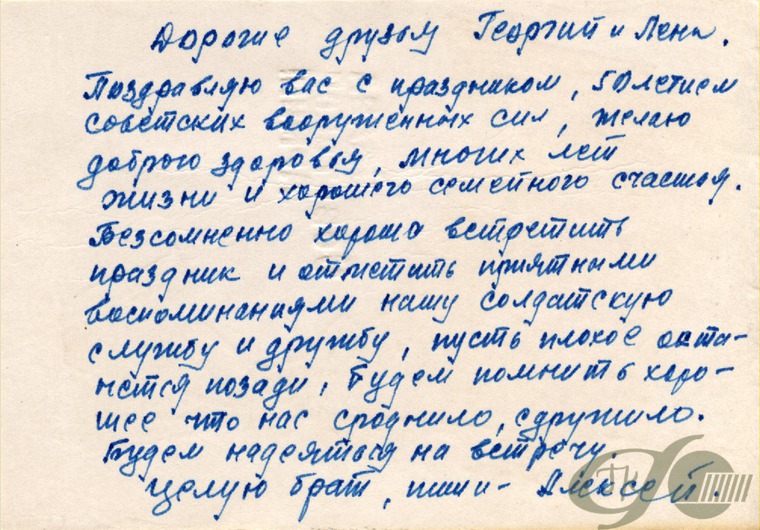 Дорогие друзья Георгий и Лена.
Поздравляю вас с праздником, 50 летием
советских вооруженных сил, желаю
доброго здоровья, многих лет
жизни и хорошего семейного счастья.
Безсомненно хорошо встретить
праздник и отметить приятными
воспоминаниями нашу солдатскую
службу и дружбу, пусть плохое оста-
нется позади, будем помнить хоро-
шее что нас сроднило, сдружило.
Будем надеяться на встречу.
Целую брат, пиши - Алексей.